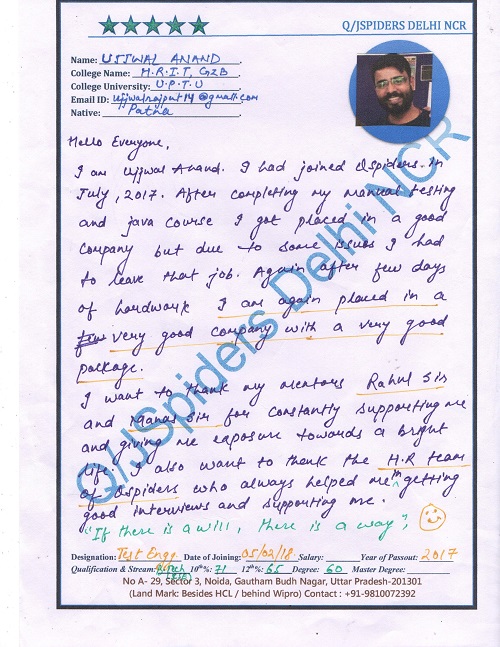 Q/JSPIDERS DELHI NCR
Name: UJJWAL ANAND.
College Name: H.R.I.T, GZB.
College University: U.P.T.U.
Email ID: ujjwalrajput14@gmail.com
Native: Patna.
Hello Everyone,
I am Ujjwal Anand. I had joined Qspiders in
July, 2017. After completing my manual testing
and java course I got placed in a good
company but due to some issues I had
to leave that job. Again after few days
of hardwork I am again placed in a
few very good company with a very good
package.
I want to thank my mentors Rahul Sir
and Manas Sir for constantly supporting me
and giving me exposure towards a bright
life. I also want to thank the H.R team
of Qspiders who always helped me in getting
good interviews and supporting me.
"If there is a will, there is a way"
Q/JSpiders Delhi NCR
Designation: Test Engg. Date of Joining: 05/02/18 Salary: Year of Passout: 2017
Qualification & Stream: B.Tech 10th%: 71 12th%: 65 Degree: 60 Master Degree:
No A- 29, Sector 3, Noida, Gautham Budh Nagar, Uttar Pradesh-201301
(Land Mark: Besides HCL / behind Wipro) Contact : +91-9810072392